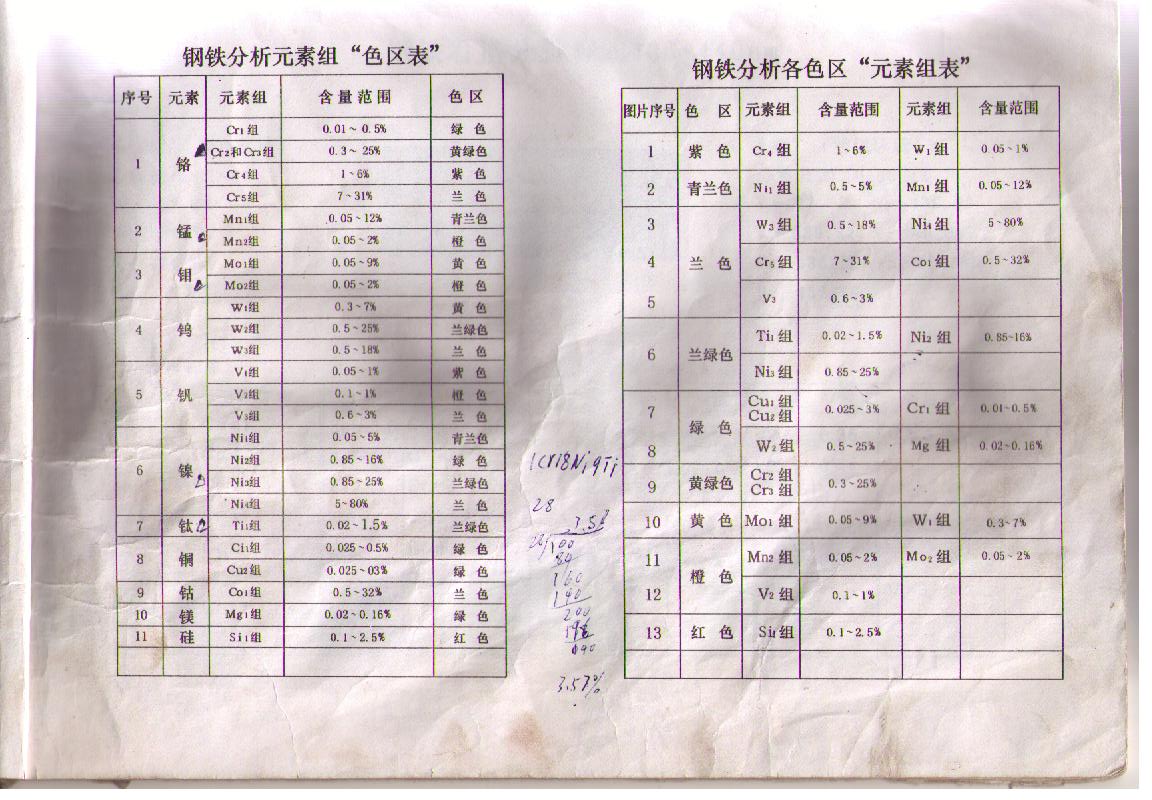 钢铁分析元素组“色区表”
序号 元素 元素组 含量范围 色区
1 铬 Cr1组 0.01~0.5% 绿色
Cr2和Cr3组 0.3~25% 黄绿色
Cr4组 1~6% 紫色
Cr5组 7~31% 兰色
2 锰 Mn1组 0.05~12% 青兰色
Mn2组 0.05~2% 橙色
3 钼 Mo1组 0.05~9% 黄色
Mo2组 0.05~2% 橙色
4 钨 W1组 0.3~7% 黄色
W2组 0.5~25% 兰绿色
W3组 0.5~18% 兰色
5 钒 V1组 0.05~1% 紫色
V2组 0.1~1% 橙色
V3组 0.6~3% 兰色
6 镍 Ni1组 0.05~5% 青兰色
Ni2组 0.85~16% 绿色
Ni3组 0.85~25% 兰绿色
Ni4组 5~80% 兰色
7 钛 Ti1组 0.02~1.5% 兰绿色
8 铜 Ci1组 0.025~0.5% 绿色
Cu2组 0.025~03% 绿色
9 钴 Co1组 0.5~32% 兰色
10 镁 Mg1组 0.02~0.16% 绿色
11 硅 Si1组 0.1~2.5% 红色
1Cr18Ni9Ti
28
3.57
28 100
84
160
140
200
196
3.57%
钢铁分析各色区“元素组表”
图片序号 色区 元素组 含量范围 元素组 含量范围
1 紫色 Cr4组 1~6% W1组 0.05~1%
2 青兰色 Ni1组 0.5~5% Mn1组 0.05~12%
3 兰色 W3组 0.5~18% Ni4组 5~80%
4 Cr5组 7~31% Co1组 0.5~32%
5 V3 0.6~3%
6 兰绿色 Ti1组 0.02~1.5% Ni2组 0.85~16%
Ni3组 0.85~25%
7 绿色 Cu1组 Cu2组 0.025~3% Cr1组 0.01~0.5%
8 W2组 0.5~25% Mg组 0.02~0.16%
9 黄绿色 Cr2组 Cr3组 0.3~25%
10 黄色 Mo1组 0.05~9% W1组 0.3~7%
11 橙色 Mn2组 0.05~2% Mo2组 0.05~2%
12 V2组 0.1~1%
13 红色 Si1组 0.1~2.5%